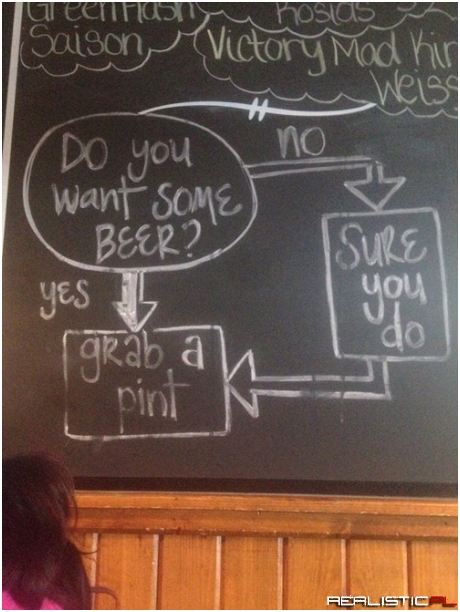 GreenFlash
Saison
Victory Mad Kin
Weiss
Do you
want SOME
BEER?
no
yes
SURE
you
do
grab a
pint
REALISTIC.PL